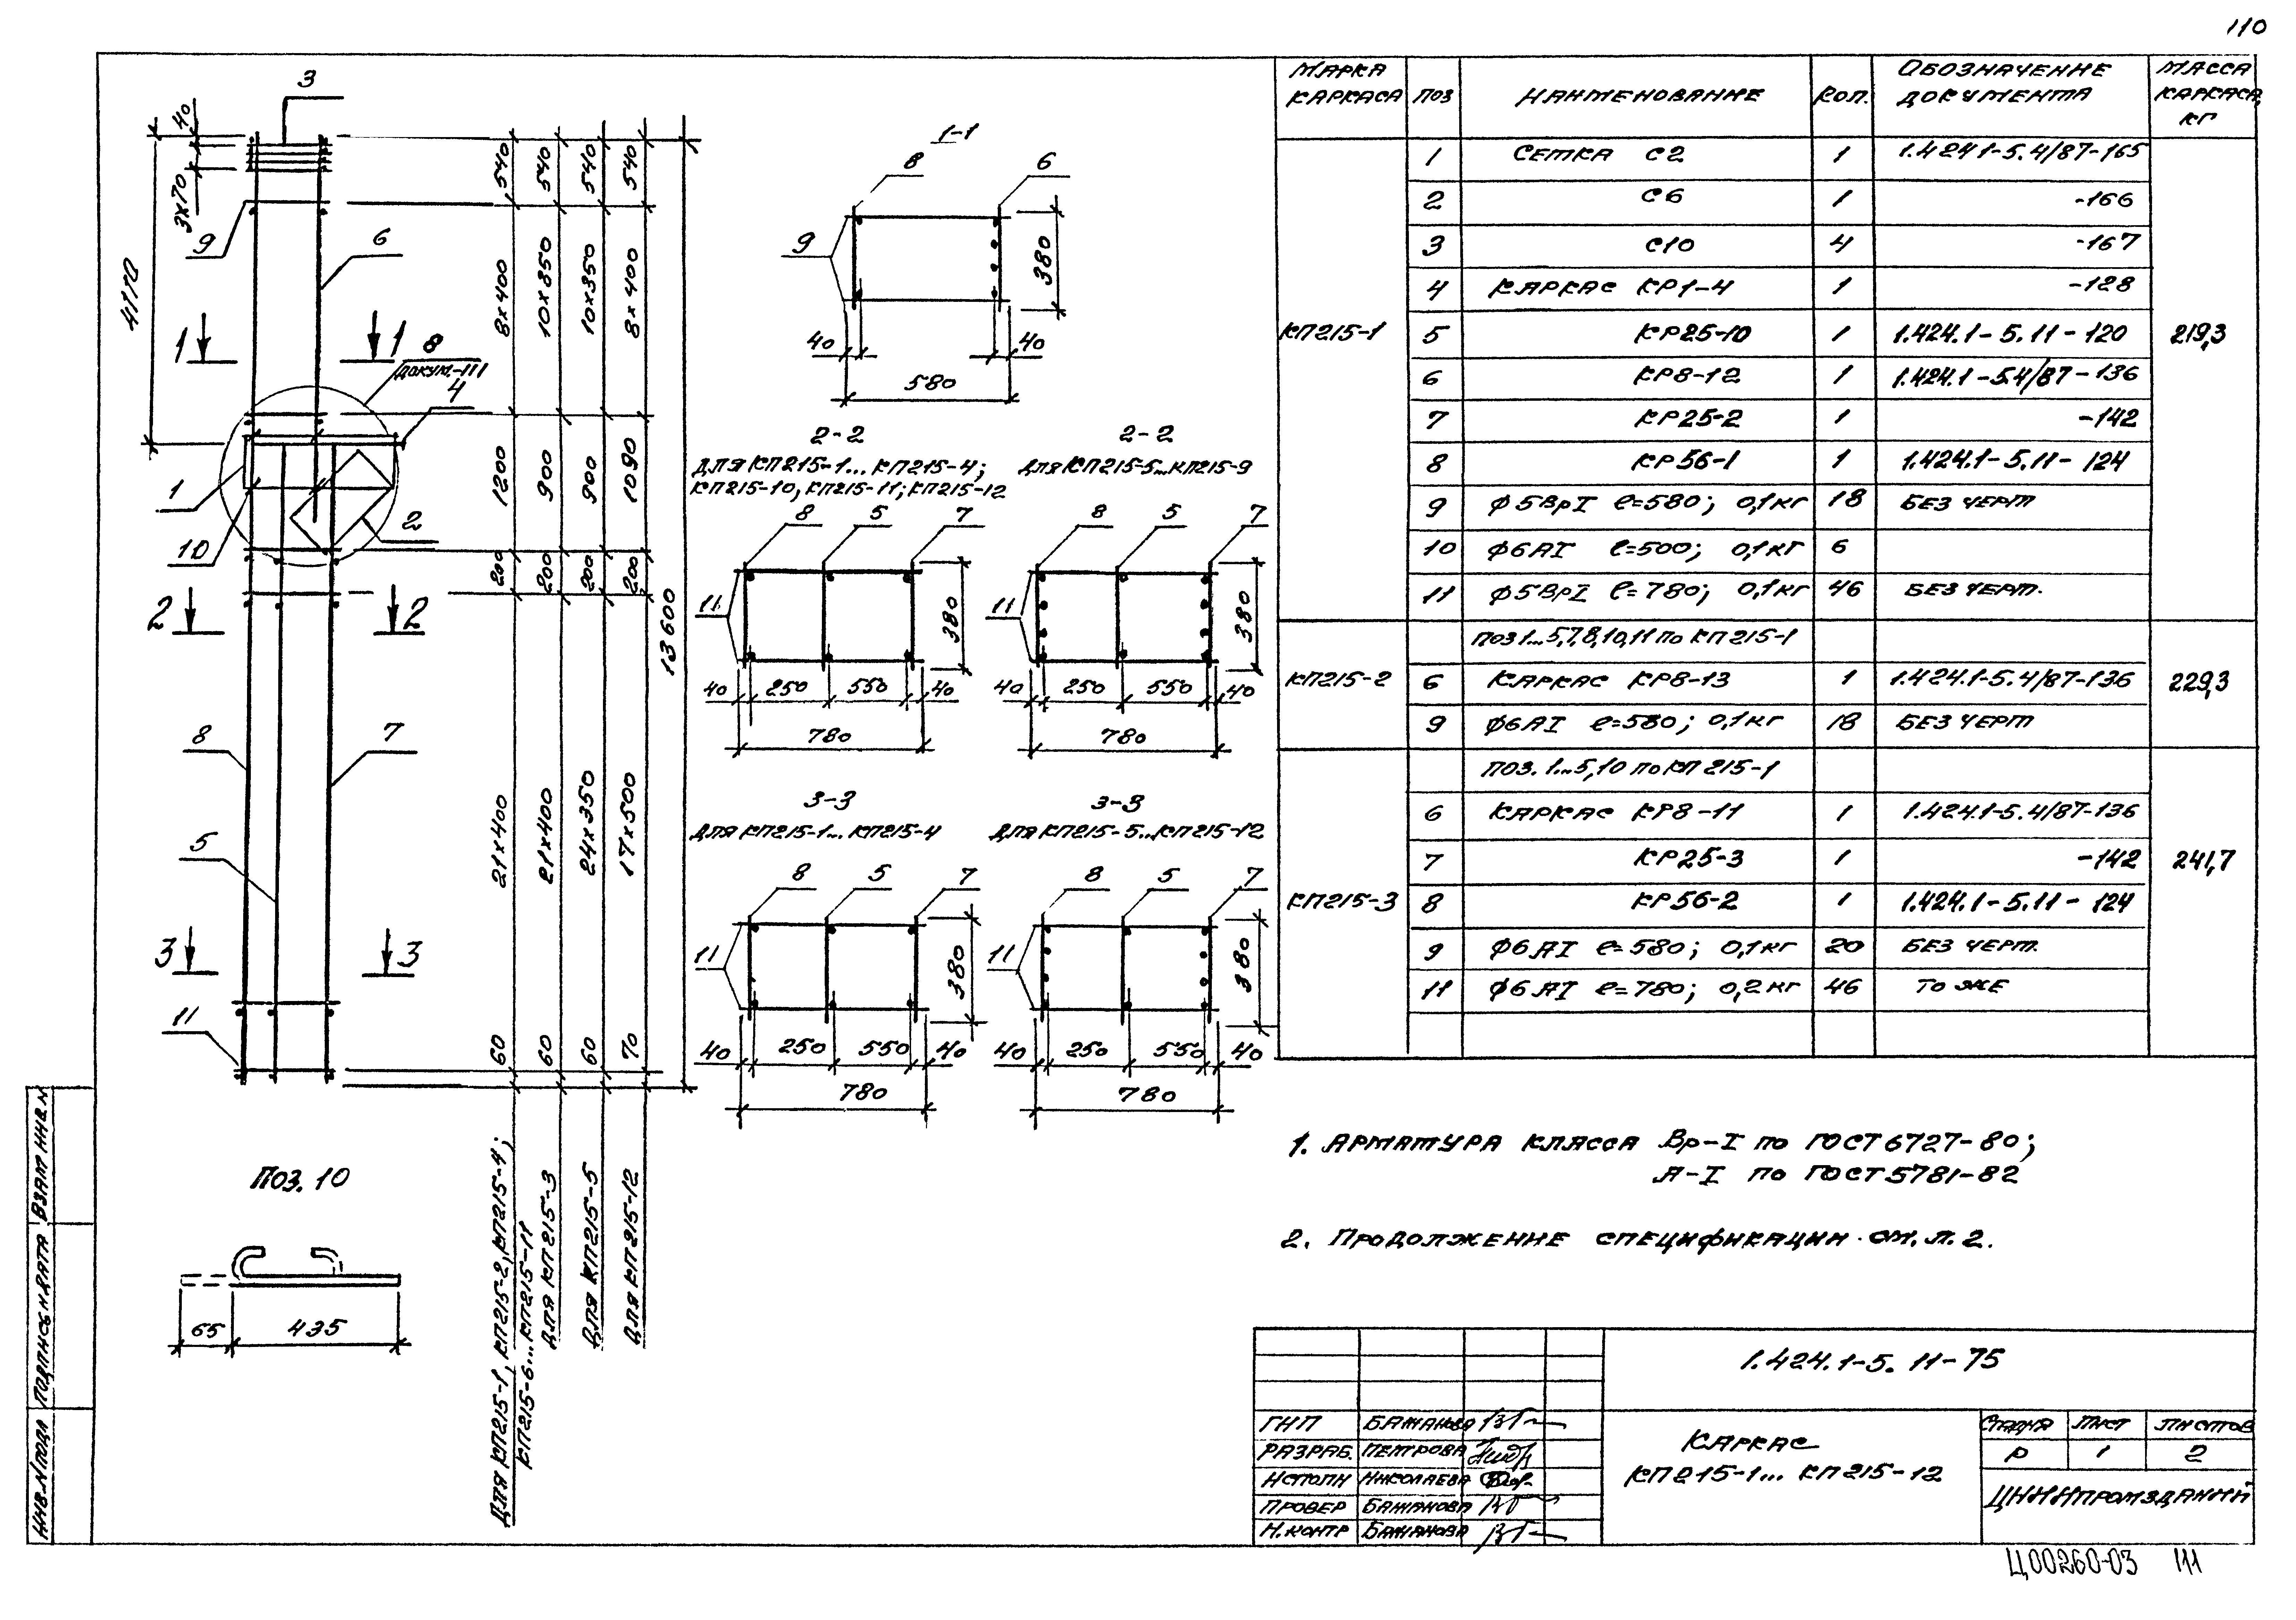 110
МАРКА КАРКАСА ПОЗ НАИМЕНОВАНИЕ КОЛ. ОБОЗНАЧЕНИЕ ДОКУМЕНТА МАССА КАРКАСА, КГ
КП215-1 219,3
1 СЕТКА С2 1 1.424.1-5.4/87-165
2 С6 1 -166
3 С10 4 -167
4 КАРКАС КР1-4 1 -128
5 КР25-10 1 1.424.1-5.11-120
6 КР8-12 1 1.424.1-5.4/87-136
7 КР25-2 1 -142
8 КР56-1 1 1.424.1-5.11-124
9 Ф5ВрI ℓ=580; 0,1кг 18 БЕЗ ЧЕРТ
10 Ф6АI ℓ=500; 0,1кг 6
11 Ф5ВрI ℓ=780; 0,1кг 46 БЕЗ ЧЕРТ.
КП215-2 229,3
ПОЗ 1...5,7,8,10,11 ПО КП215-1
6 КАРКАС КР8-13 1 1.424.1-5.4/87-136
9 Ф6АI ℓ=580; 0,1кг 18 БЕЗ ЧЕРТ
КП215-3 241,7
ПОЗ. 1...5,10 ПО КП215-1
6 КАРКАС КР8-11 1 1.424.1-5.4/87-136
7 КР25-3 1 -142
8 КР56-2 1 1.424.1-5.11-124
9 Ф6АI ℓ=580; 0,1кг 20 БЕЗ ЧЕРТ.
11 Ф6АI ℓ=780; 0,2кг 46 ТО ЖЕ
3
40
3х70
9
6
4170
1 1
8
ДОКУМ.-111
4
1
2
10
2 2
8
7
5
3 3
11
540 540 540 540
8х400 10х350 10х350 8х400
1200 900 900 1090
200 200 200 200
13600
21х400 21х400 24х350 17х500
60 60 60 70
ДЛЯ КП215-1, КП215-2, КП215-4;
КП215-6...КП215-11
ДЛЯ КП215-3
ДЛЯ КП215-5
ДЛЯ КП215-12
1-1
8 6
9
380
40 40
580
2-2
ДЛЯ КП215-1... КП215-4;
КП215-10, КП215-11; КП215-12
8 5 7
11
380
40 250 550 40
780
2-2
ДЛЯ КП215-5...КП215-9
8 5 7
11
380
40 250 550 40
780
3-3
ДЛЯ КП215-1... КП215-4
8 5 7
11
380
40 250 550 40
780
3-3
ДЛЯ КП215-5...КП215-12
8 5 7
11
380
40 250 550 40
780
ПОЗ. 10
65 435
1. АРМАТУРА КЛАССА Вр-I ПО ГОСТ 6727-80;
А-I ПО ГОСТ 5781-82
2. ПРОДОЛЖЕНИЕ СПЕЦИФИКАЦИИ СМ. Л. 2.
1.424.1-5. 11-75
ГИП БАЖАНОВА
РАЗРАБ. ПЕТРОВА
ИСПОЛН НИКОЛАЕВА
ПРОВЕР БАЖАНОВА
Н.КОНТР БАЖАНОВА
КАРКАС
КП215-1... КП215-12
СТАДИЯ ЛИСТ ЛИСТОВ
Р 1 2
ЦНИИПРОМЗДАНИЙ
ИНВ.N ПОДЛ ПОДПИСЬ И ДАТА ВЗАМ ИНВ.N
Ц00260-03 111